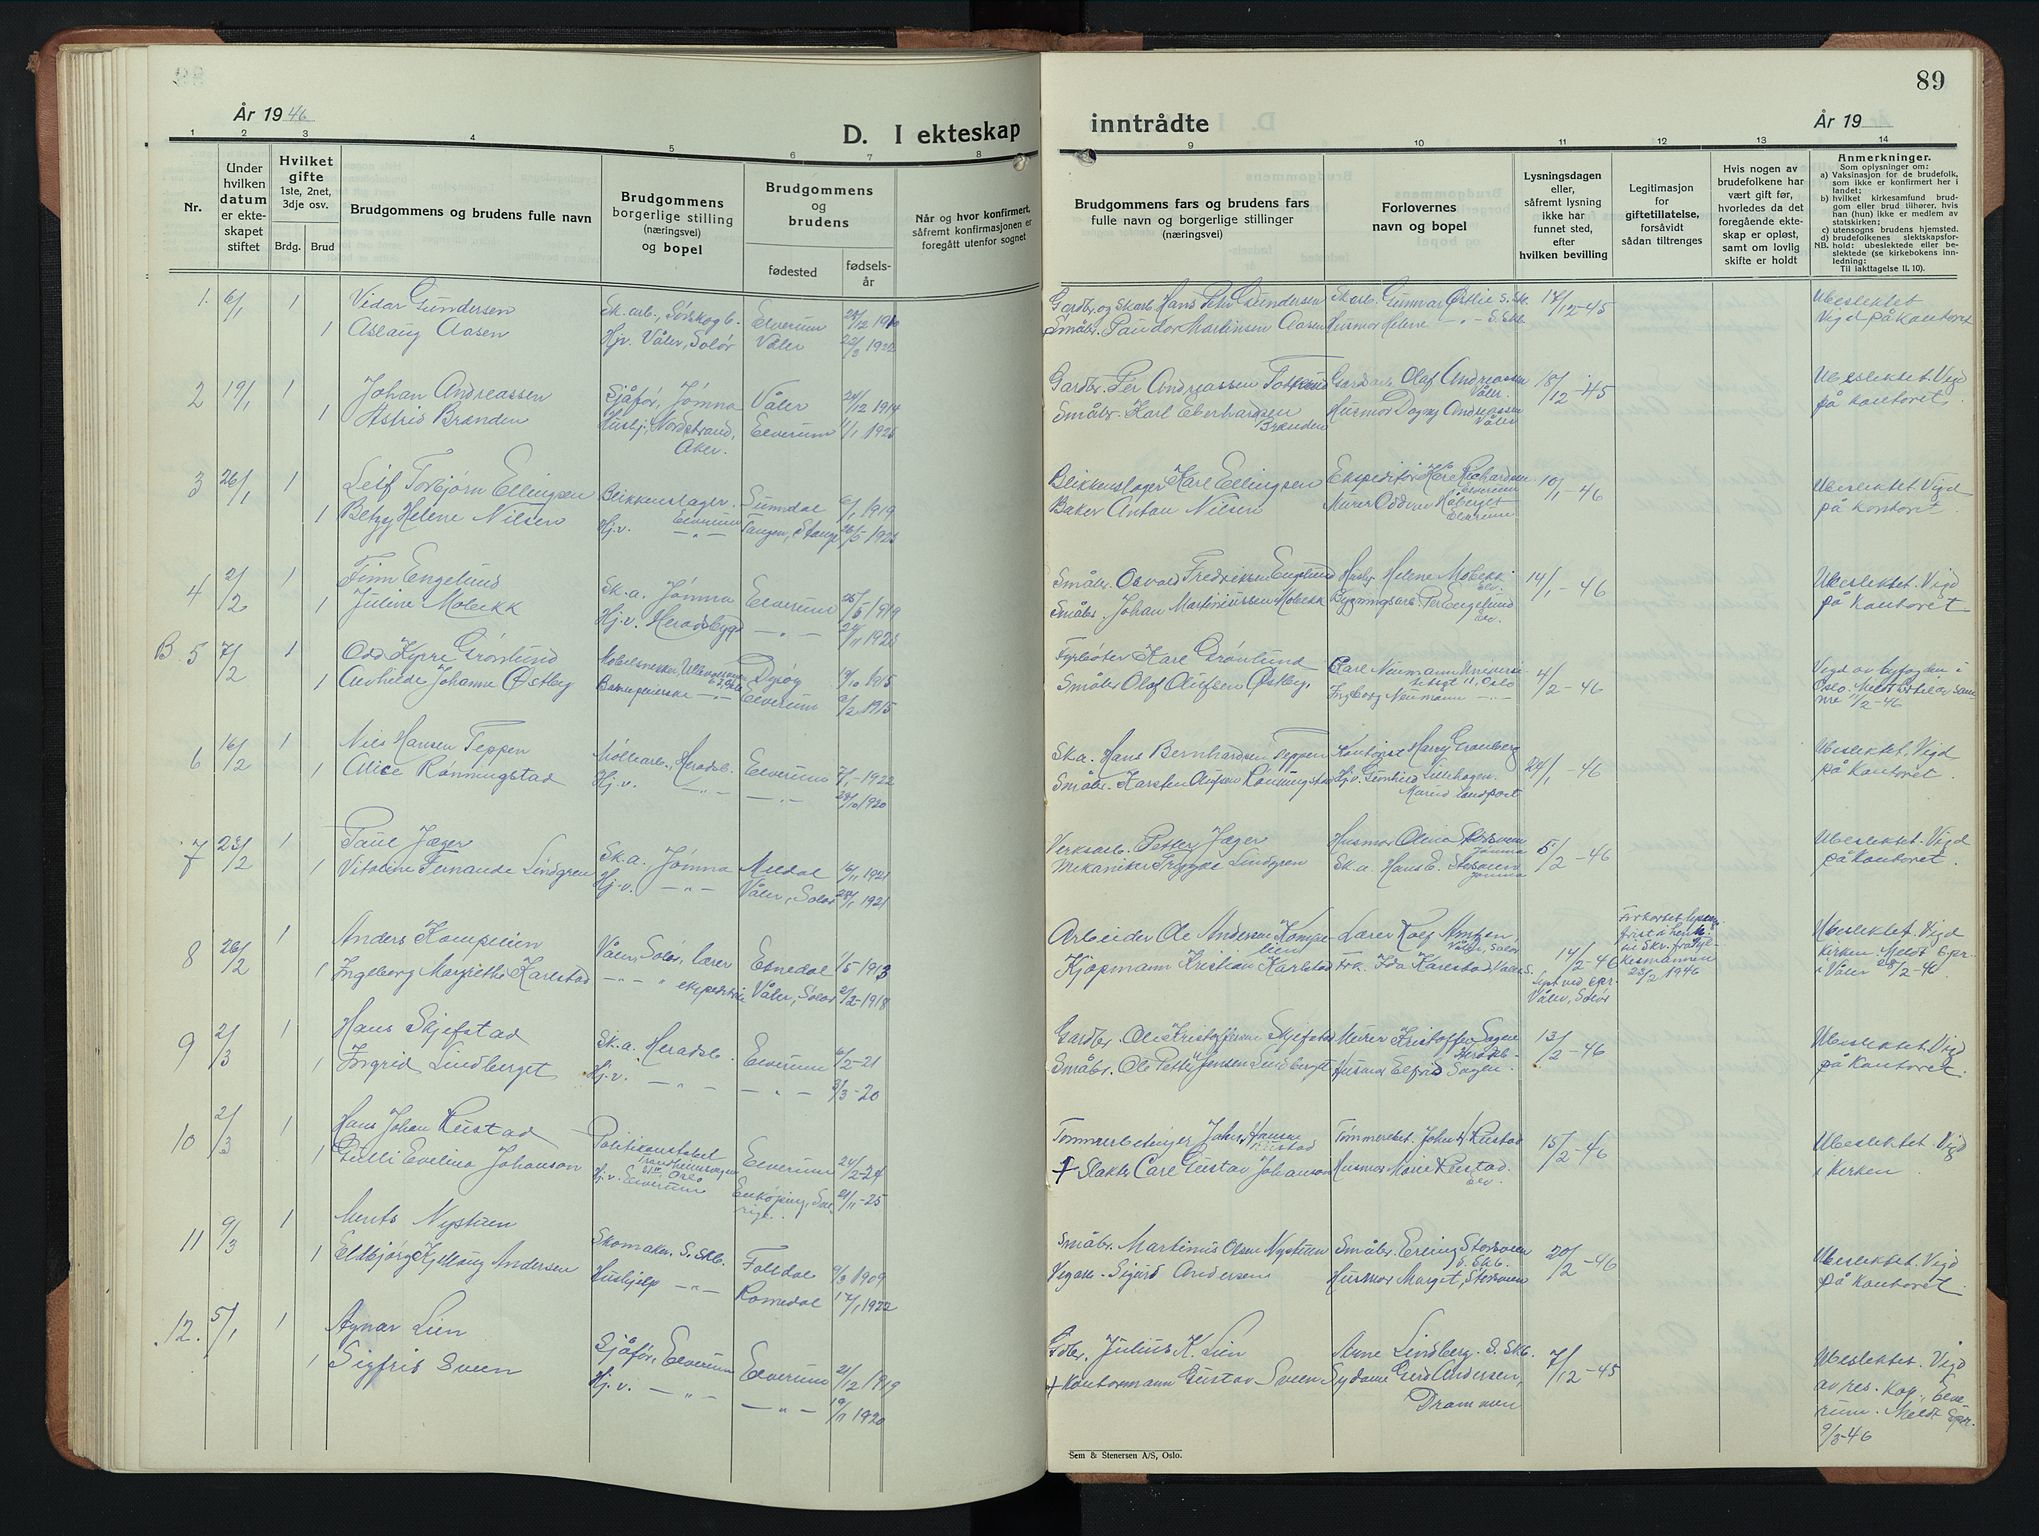 89
År 19 46
D. I ekteskap
inntrådte
År 19
1 2 3 4 5 6 7 8
9 10 11 12 13 14
Nr.
Under hvilken datum er ekteskapet stiftet
Hvilket gifte
1ste, 2net, 3dje osv.
Brdg. Brud
Brudgommens og brudens fulle navn
Brudgommens borgerlige stilling (næringsvei) og bopel
Brudgommens og brudens
fødested
fødselsår
Når og hvor konfirmert, såfremt konfirmasjonen er foregått utenfor sognet
Brudgommens fars og brudens fars fulle navn og borgerlige stillinger (næringsvei)
Forlovernes navn og bopel
Lysningsdagen eller, såfremt lysning ikke har funnet sted, efter hvilken bevilling
Legitimasjon for giftetillatelse, forsåvidt sådan tiltrenges
Hvis nogen av brudefolkene har vært gift før, hvorledes da det foregående ekteskap er opløst, samt om lovlig skifte er holdt
Anmerkninger.
Som oplysninger om:
a) Vaksinasjon for de brudefolk, som ikke er konfirmert her i landet;
b) hvilket kirkesamfund brudgom eller brud tilhører, hvis han (hun) ikke er medlem av statskirken;
c) utensogns brudens hjemsted.
d) brudefolkenes slektskapsforhold: ubeslektede eller beslektede (se kirkebokens innledning: Til iakttagelse II. 10).
1. 6/1 1 Vidar Gundersen Sk.arb., Sørskogb. Elverum 1910
1 Aslaug Aasen Hjv. Våler, Solør Våler 22/3 1922
Gardbr. og Skarb. Hans Petr Gundersen Skarb. Gunnar Østlie S.Skb. 17/12-45 Ubeslektet
Småbr. Paul Martinsen Aasen Husmor Helene -"- S.Skb. Vigd på kontoret
2 19/1 1 Johan Andreassen Sjåfør, Jømna Våler 1914
1 Astrid Brænden Hushj., Nordstrand, Aker. Elverum 1/1 1925
Gardbr. Per Andreassen Gardarb. Olaf Andreassen Våler. 18/12-45 Ubeslektet. Vigd
Småbr. Karl Eberhardsen Brænden Husmor Dagny Andreassen Våler på kontoret,
3 26/1 1 Leif Torbjørn Ellingsen Blikkenslager. Elverum Sunndal 6/1 1919
1 Betzy Helene Nilsen Hj.v. -"- Tangen, Stange 26/5 1925
Blikkenslager Karl Ellingsen Ekspeditør Kåre Richardsen Elverum 10/1-46 Ubeslektet. Vigd
Baker Anton Nilsen Murer Oddvar Håberget Elverum på kontoret.
4 2/2 1 Finn Engelund Sk.a. Jømna Elverum 25/5 1919
1 Juline Mobekk Hj.v. Heradsbygd -"- 1923
Småbr. Osvald Fredriksen Engelund Husby Helene Mobekk Elv. 14/1-46 Ubeslektet. Vigd
Småbr. Johan Martiniussen Mobekk Bygningsarb. Per Engelund Elv. på kontoret
B. 5 7/2 1 Odd Kyrre Grønlund Møbelsnekker, Dyrøy 19/10 1915
1 Alvhilde Johanne Østberg Barnepleierske -"- Elverum 2/2 1915
Fyrbøter Karl Grønlund Carl Neumann Universitetsgt 11, Oslo 4/2-46 Vigd av byfogden i
Småbr Olaf Olufsen Østberg, Ingborg Neumann -"- Oslo.
6 16/2 1 Nils Hansen Teppen Møllearb., Heradsb. Elverum 7/1-1922
1 Alice Rønningstad Hj.v. -"- -"- 28/10 1920
Sk.a. Hans Bernhardsen Teppen Kontorist Harry Gronberg 24/1-46 Ubeslektet. Vigd
Småbr. Karsten Olufsen Rønningstad Hj.v. Gunhild Lillehagen. på kontoret.
7 23/2 1 Paul Jæger Sk.a. Jømna Meldal 16/11 1921
1 Vitaline Fernande Lindgren Hj.v. -"- Våler, Solør 28/1 1921
Verksarb. Petter Jæger Husmor Olina Storsveen Jømna 5/2-46 Ubeslektet. Vigd
Mekaniker Trygve Lindgren Sk.a. Hans E. Storsveen Jømna på kontoret.
8 26/2 1 Anders Kompelien Våler, Solør, lærer Etnedal 1/5 1913
1 Ingeborg Margrethe Karlstad -"- ekspeditrise Våler, Solør 2/2-1918
Arbeider Ole Andersen Kompelien Lærer Rolf Våler, Solør 14/2-46 Ubeslektet. Vigd
Kjøpmann Kristian Karlstad Frk. Ida Karlstad, Våler S. Lyst ved spr. Våler, Solør Kirken. Meldt Spr. i Våler 28/2-46.
Forkortet lysningsfrist i henh. til Skr. fra Fylkesmannen 23/2 1946
9 2/3 1 Hans Skjefstad Sk.a. Heradsb. Elverum 6/2-21
1 Ingrid Lindberget Hj.v. -"- -"- 31/3-20
Gardbr. Ole Kristoffersen Skjefstad Murer Kristoffer Sagen Heradsb. 13/2-46 Ubeslektet. Vigd
Småbr. Ole Petter Jensen Lindberget Husmor Elfrid Sagen -"- på kontoret.
10 2/3 1 Hans Johan Rustad Politikonstabel Trondheimsvegen Oslo Elverum 24/2-24
1 Gulli Evelina Johanson Hj.v. Elverum Enköping, Sverige. 21/11-25
Tømmerbetinger Johan Hansen Rustad Tømmerbet. Johan H Rustad 15/2-46 Ubeslektet. Vigd
† Slakter Carl Gustav Johanson Husmor Marie Rustad. Elv. i kirken.
11 9/3 1 Nystuen Skomaker, S.Skb. Folldal 9/3 1909
1 Eldbjørg Kjellaug Andersen Hushjelp -"- Romedal 17/1 1922
Småbr. Martinus Olsen Nystuen Småbr. Erling Storsveen S.Skb. 20/2-46 Ubeslektet. Vigd
Vegarb. Sigurd Andersen Husmor Margit Storsveen på kontoret.
12. 5/1 1 Agnar Lien Sjåfør, Elverum Elverum 21/12 1919
1 Sigfrid Sveen Hj.v. -"- -"- 19/11 1920
Gdbr. Julius K. Lien Arne Lindberg. S.Skb. 7/12-45 Ubeslektet. Vigd
† Kontormann Gustav Sveen Sydame Gerd Andersen, Drammen av res. kap., Elverum. Meldt Spr. 9/3-46
Sem & Stenersen A/S, Oslo.